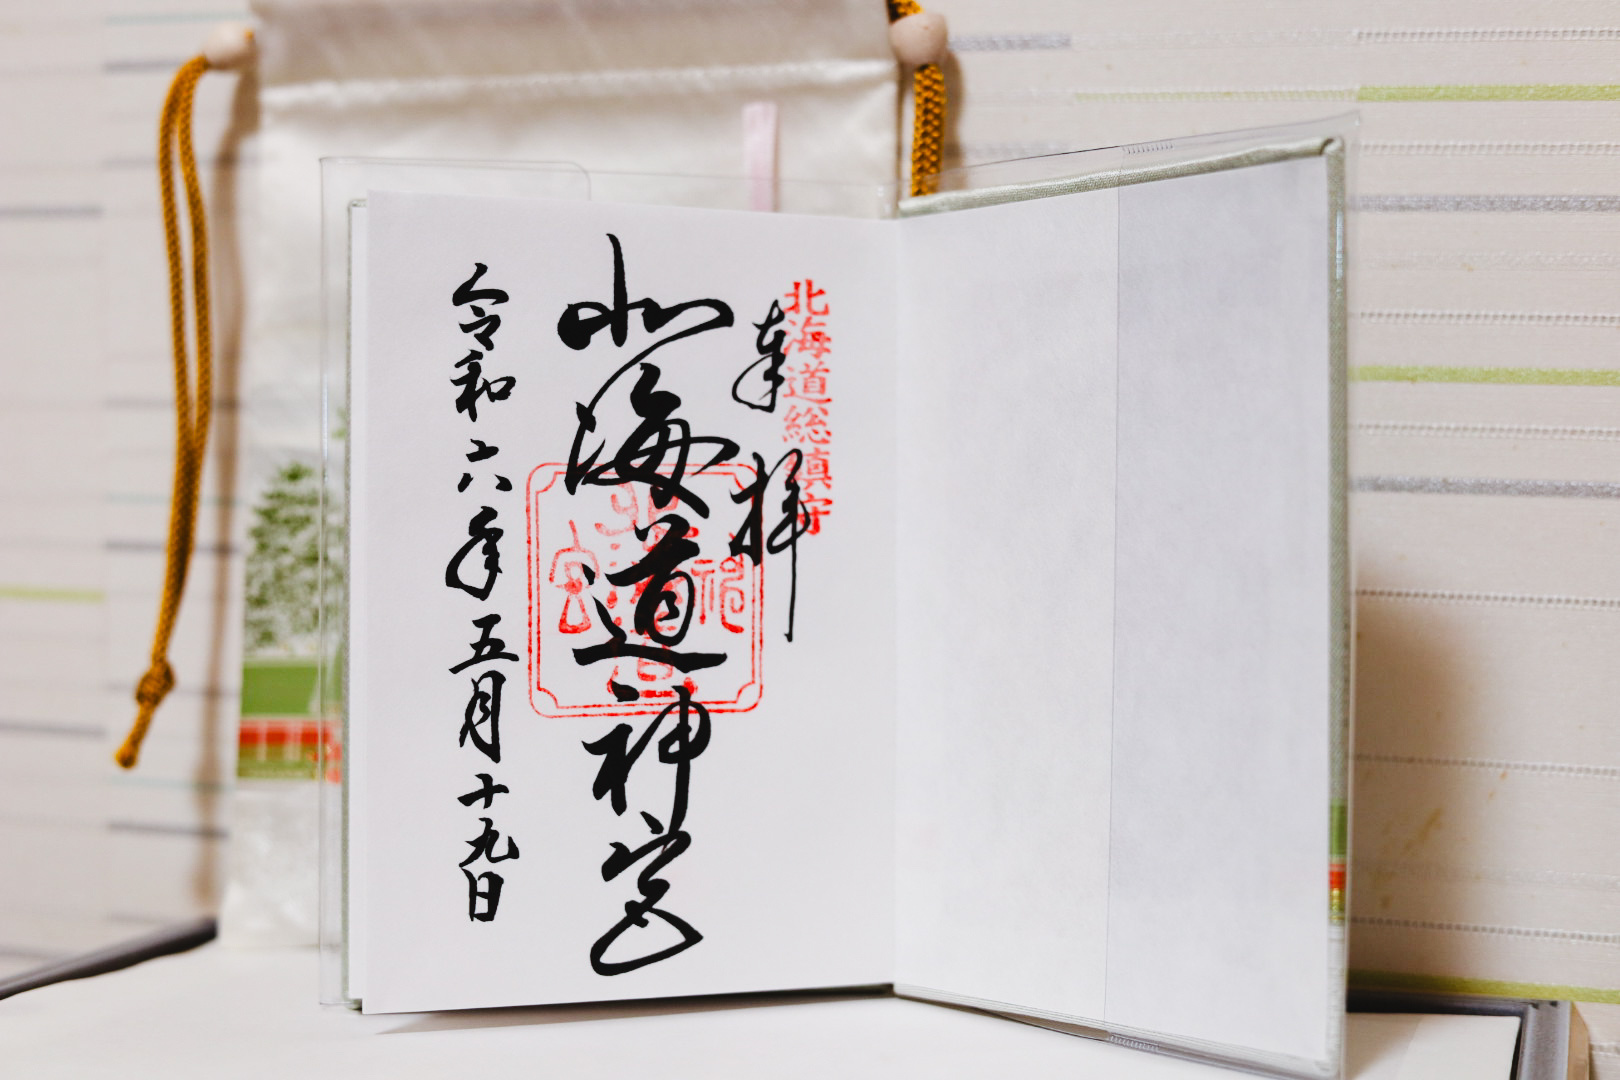 北海道総鎮守
奉拝
北海道神宮
令和六年五月十九日